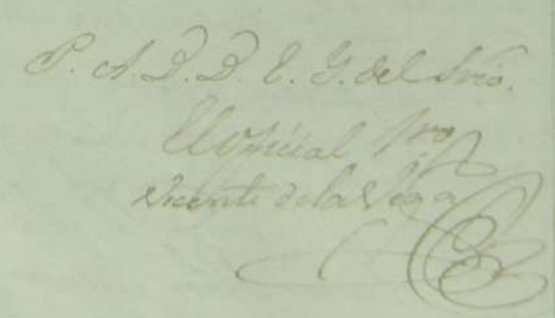 P. A. D. D. E. G. del Srio.
El Oficial 1ro
Vicente de la Vega